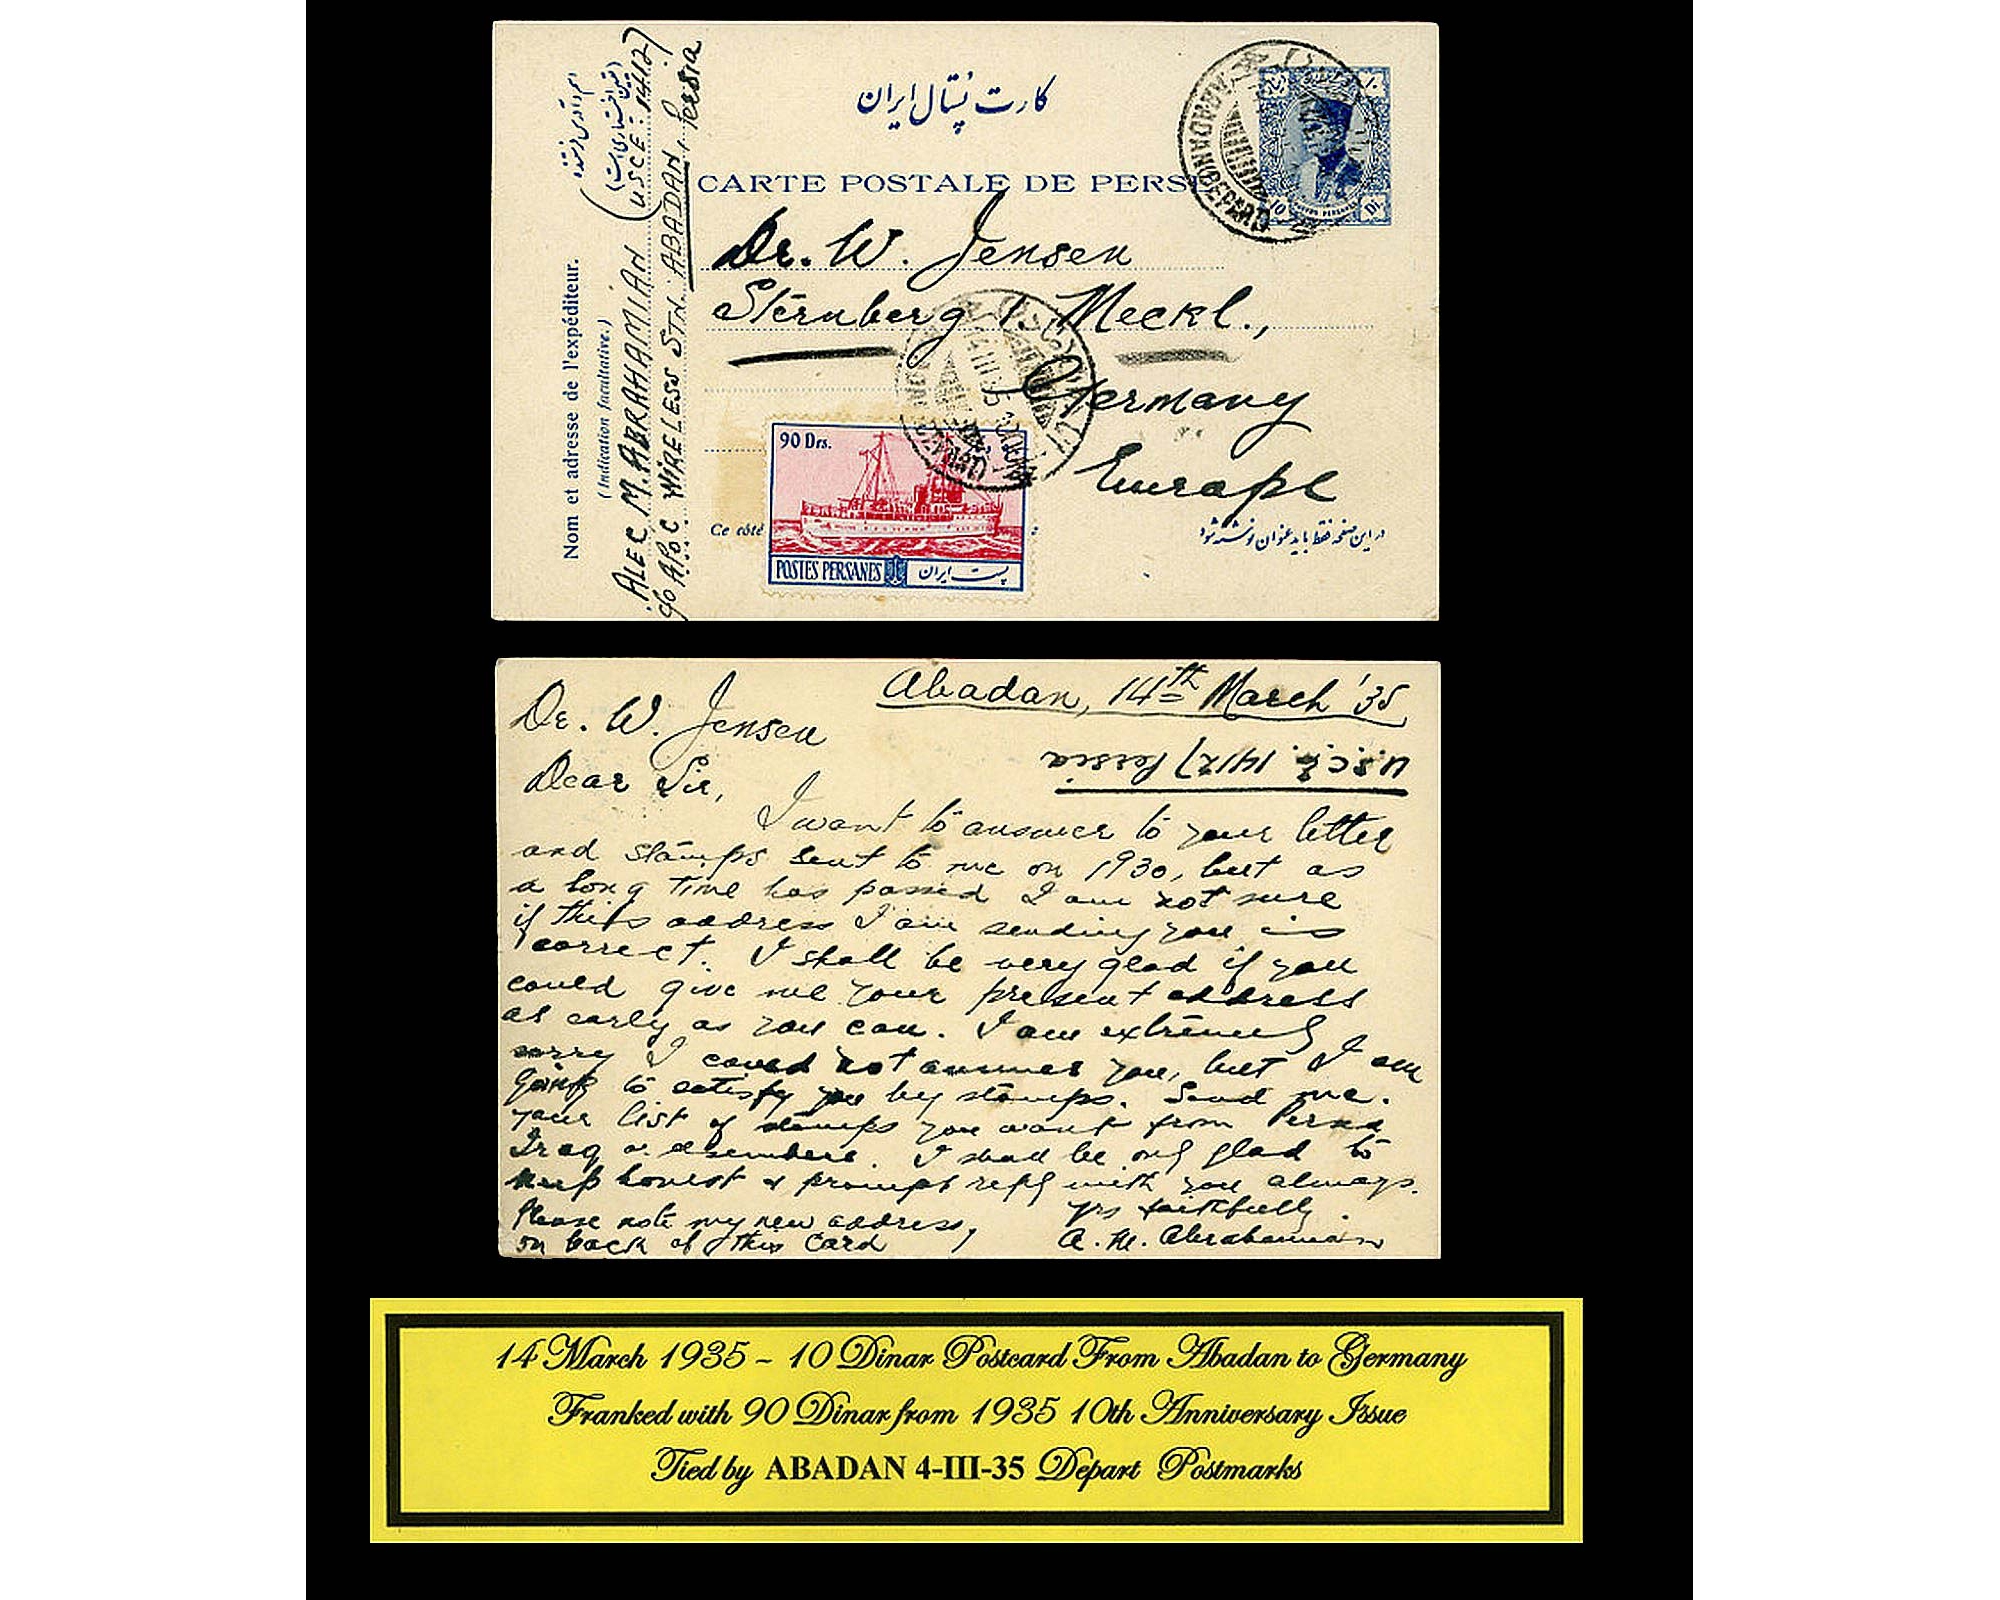 کارت پستال ایران
CARTE POSTALE DE PERSE
ABADAN DEPART
10 Di.
Dr. W. Jensen
Sternberg i. Meckl.,
Germany
Europe
14 III 35
ABADAN DEPART
90 Drs.
POSTES PERSANES پست ایران
Ce côté
در این صفحه فقط باید عنوان نوشته شود
اسم و آدرس فرستنده
(تعیین اختیاری است)
Nom et adresse de l'expéditeur.
(Indication facultative.)
ALEC M. ABRAHAMIAN (USCE. 14127)
c/o A.P.O.C WIRELESS STN. ABADAN, Persia
Abadan, 14th March '35
U.S.C.E. 14127 Persia
Dr. W. Jensen
Dear Sir,
I want to answer to your letter
and stamps sent to me on 1930, but as
a long time has passed I am not sure
if this address I am sending you is
correct. I shall be very glad if you
could give me your present address
as early as you can. I am extremely
sorry I could not answer you, but I am
going to satisfy you by stamps. Send me
your list of stamps you want from Persia
Iraq or elsewhere. I shall be only glad to
keep honest & prompt reply with you always.
yrs faithfully.
A. M. Abrahamian
Please note my new address,
on back of this card
14 March 1935 - 10 Dinar Postcard From Abadan to Germany
Franked with 90 Dinar from 1935 10th Anniversary Issue
Tied by ABADAN 4-III-35 Depart Postmarks